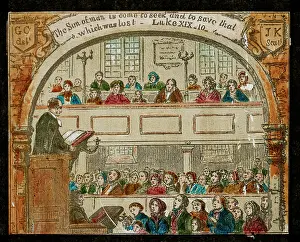 The Son of man is come to seek and to save that
which was lost - Luke XIX. 10.
GC
del.
JK
Sculp